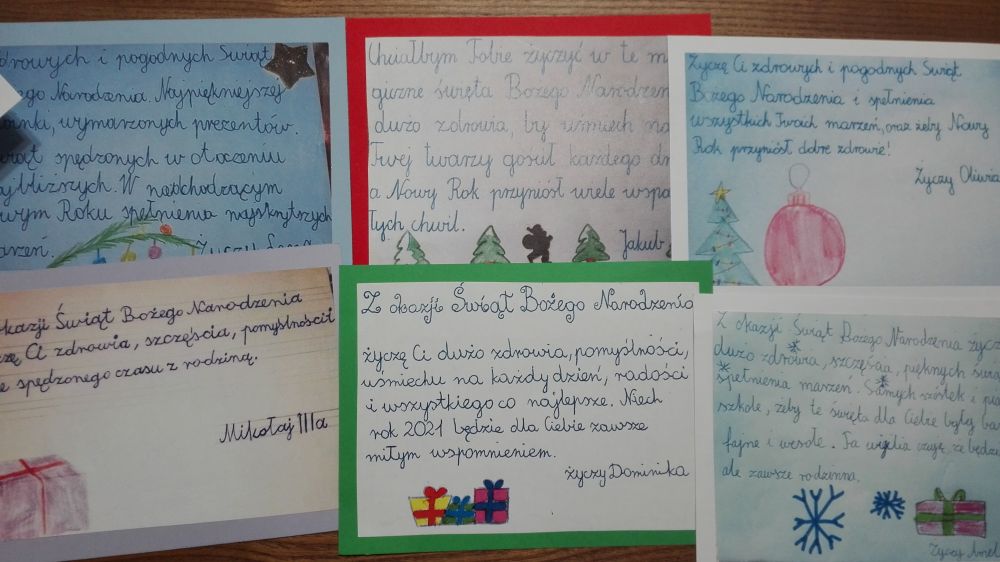 drowych i pogodnych Świąt
ego Narodzenia. Najpiękniejszej
oinki, wymarzonych prezentów.
wiąt spędzonych w otoczeniu
ajbliższych. W nadchodzącym
wym Roku spełnienia najskrytszych
arzeń.
Życzy
Chciałbym Tobie życzyć w te m
giczne święta Bożego Narodzen
dużo zdrowia, by uśmiech na
Twej twarzy gościł każdego dn
a Nowy Rok przyniósł wiele wspa
łych chwil.
Jakub
Życzę Ci zdrowych i pogodnych Świąt
Bożego Narodzenia i spełnienia
wszystkich Twoich marzeń, oraz żeby Nowy
Rok przyniósł dobre zdrowie!
Życzy Oliwia
okazji Świąt Bożego Narodzenia
zę Ci zdrowia, szczęścia, pomyślności i
e spędzonego czasu z rodziną.
Mikołaj IIIa
Z okazji Świąt Bożego Narodzenia
życzę Ci dużo zdrowia, pomyślności,
uśmiechu na każdy dzień, radości
i wszystkiego co najlepsze. Niech
rok 2021 będzie dla Ciebie zawsze
miłym wspomnieniem.
życzy Dominika
Z okazji Świąt Bożego Narodzenia życz
dużo zdrowia, szczęścia, pięknych świą
spełnienia marzeń. Samych szóstek i pią
szkole, żeby te święta dla Ciebie były bar
fajne i wesołe. Ta wigilia czuję, że będzie
ale zawsze rodzinna.
Życzy Amel